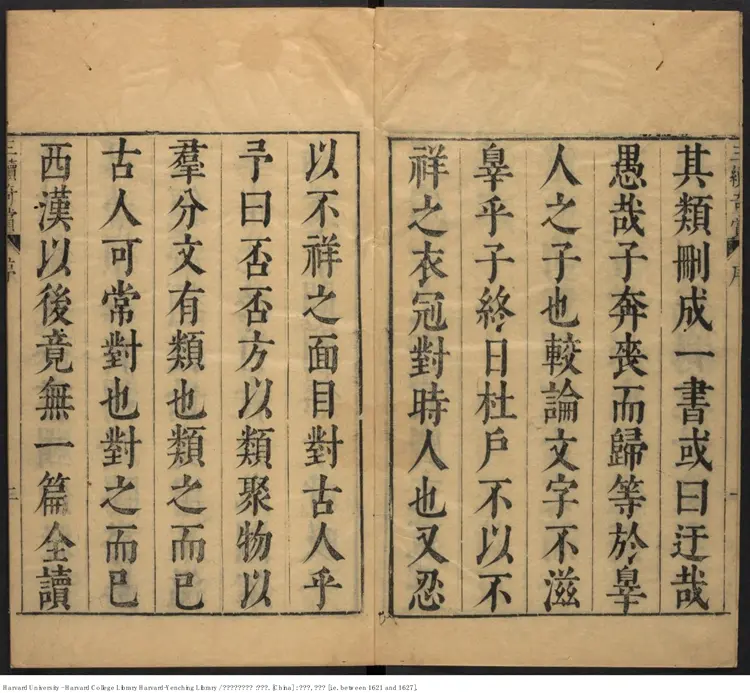 其類刪成一書或曰迂哉
愚哉子奔喪而歸等於辠
人之子也較論文字不滋
辠乎子終日杜戶不以不
祥之衣冠對時人也又忍
以不祥之面目對古人乎
予曰否否方以類聚物以
羣分文有類也類之而已
古人可常對也對之而已
西漢以後竟無一篇全讀
三續奇賞
序
Harvard University - Harvard College Library Harvard-Yenching Library / ???????? :???, [China] : ???, ??? [ie. between 1621 and 1627].